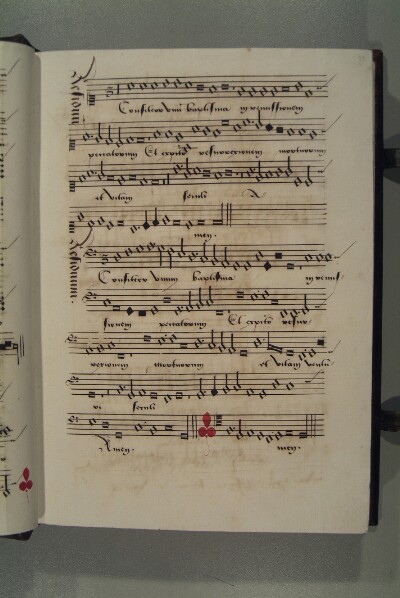 Confiteor unum baptisma in remissionem
peccatorum Et expecto resurrectionem mortuorum
et vitam seculi A
men.
Confiteor unum baptisma in remis
sionem peccatorum Et expecto resur
rectionem mortuorum et vitam ventu
ri seculi
Amen. men.